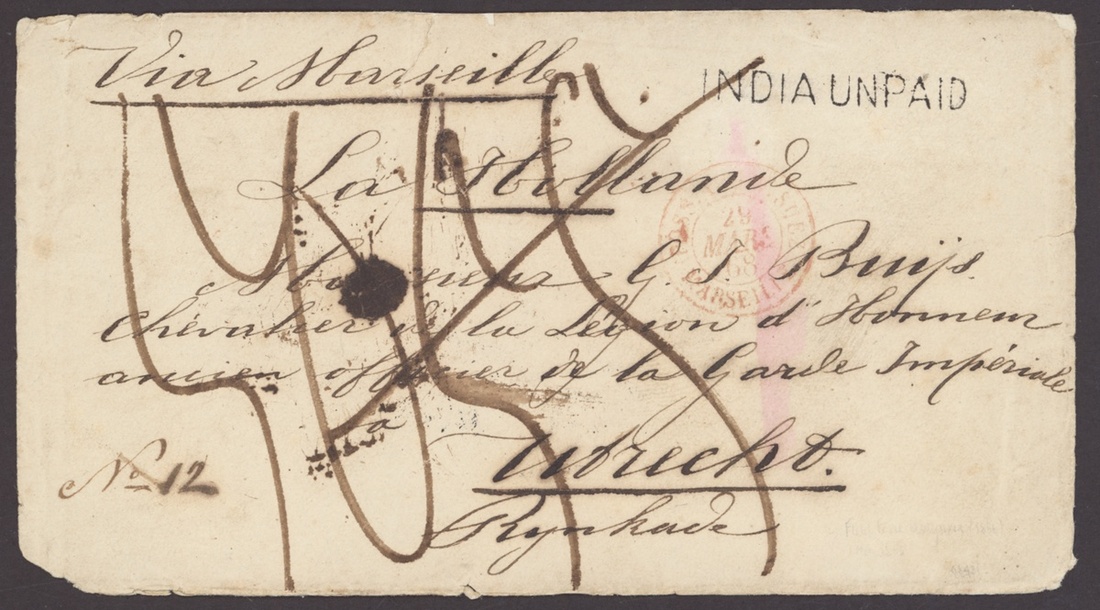 Via Marseille
INDIA UNPAID
La Hollande
29
MARS
68
MARSEILLE
Monsieur G. J. Buijs
Chevalier de la Légion d'Honneur
ancien officier de la Garde Impériale
à
Utrecht.
No 12
Rynkade